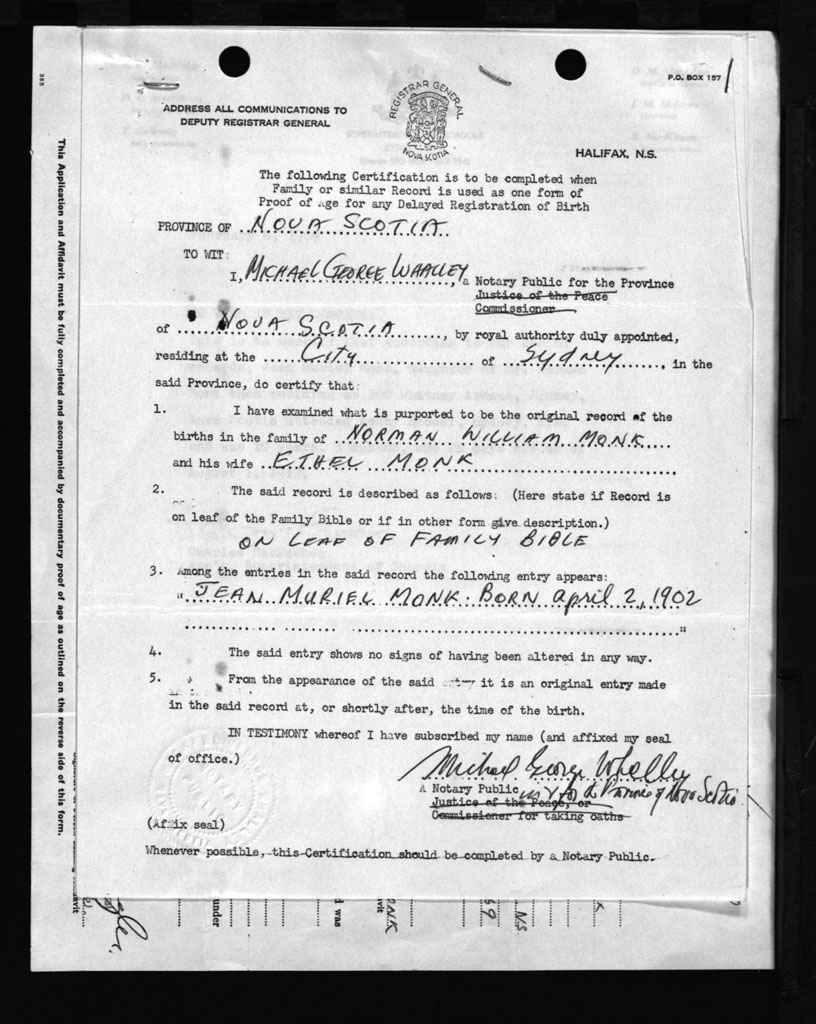 P.O. BOX 157
ADDRESS ALL COMMUNICATIONS TO
DEPUTY REGISTRAR GENERAL
REGISTRAR GENERAL
NOVA SCOTIA
HALIFAX, N.S.
385
The following Certification is to be completed when
Family or similar Record is used as one form of
Proof of Age for any Delayed Registration of Birth
PROVINCE OF NOVA SCOTIA
TO WIT:
I, MICHAEL GEORGE WHALLEY, a Notary Public for the Province
Justice of the Peace
Commissioner
of NOVA SCOTIA, by royal authority duly appointed,
residing at the City of Sydney, in the
said Province, do certify that:
1. I have examined what is purported to be the original record of the
births in the family of NORMAN WILLIAM MONK
and his wife ETHEL MONK
2. The said record is described as follows: (Here state if Record is
on leaf of the Family Bible or if in other form give description.)
ON LEAF OF FAMILY BIBLE
3. Among the entries in the said record the following entry appears:
"JEAN MURIEL MONK. BORN april 2, 1902
"
4. The said entry shows no signs of having been altered in any way.
5. From the appearance of the said entry it is an original entry made
in the said record at, or shortly after, the time of the birth.
IN TESTIMONY whereof I have subscribed my name (and affixed my seal
of office.)
Michael George Whalley
A Notary Public in & for the Province of Nova Scotia
Justice of the Peace, or
Commissioner for taking oaths
(Affix seal)
Whenever possible, this Certification should be completed by a Notary Public.
This Application and Affidavit must be fully completed and accompanied by documentary proof of age as outlined on the reverse side of this form.
under
was
N.S.